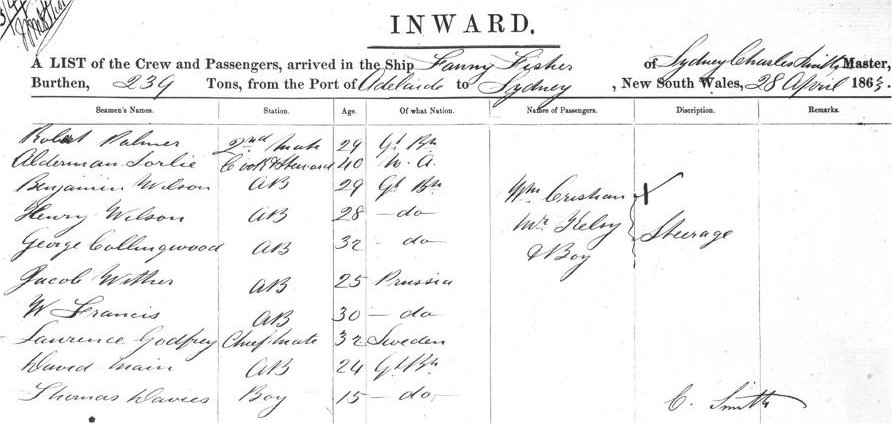 INWARD.
A LIST of the Crew and Passengers, arrived in the Ship Fanny Fisher of Sydney Charles Smith, Master,
Burthen, 239 Tons, from the Port of Adelaide to Sydney, New South Wales, 28 April 186
Seamen's Names. Station. Age. Of what Nation. Names of Passengers. Discription. Remarks.
Robert Palmer 2nd Mate 29 Gt Bn
Alderman Cook & Steward 40
Benjamin Wilson AB 29 Gt Bn Wm X
Henry Wilson AB 28 - do Mr Kelsy Steerage
George Collingwood AB 32 - do & Boy
Jacob AB 25 Prussia
W Francis AB 30 - do
Laurence Godfrey Chief Mate 32 Sweden
David Main AB 24 Gt Bn
Thomas Davies Boy 15 - do -
C. Smith